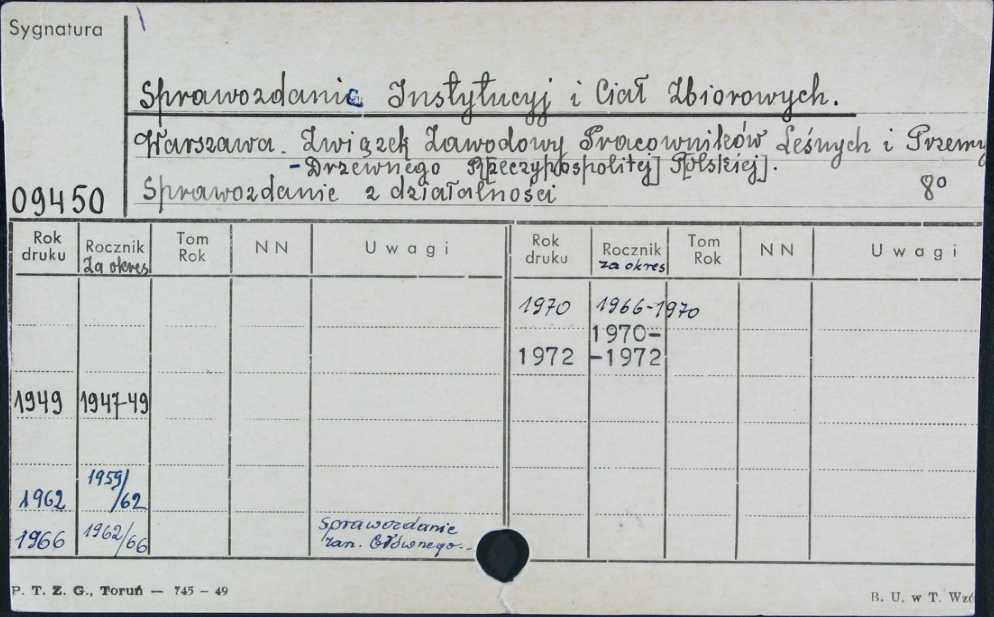 Sygnatura
Sprawozdanie Instytucyj i Ciał Zbiorowych.
Warszawa. Związek Zawodowy Pracowników Leśnych i Przemy
-Drzewnego R[zeczypospolitej] P[olskiej].
09450 Sprawozdanie z działalności 8o
Rok druku Rocznik za okres Tom Rok NN Uwagi Rok druku Rocznik za okres Tom Rok NN Uwagi
1970 1966-1970
1970-
1972 -1972
1949 1947-49
1962 1959/62
1966 1962/66 Sprawozdanie
zan. Głównego.
P. T. Z. G., Toruń — 745 – 49 B. U. w T. Wzó